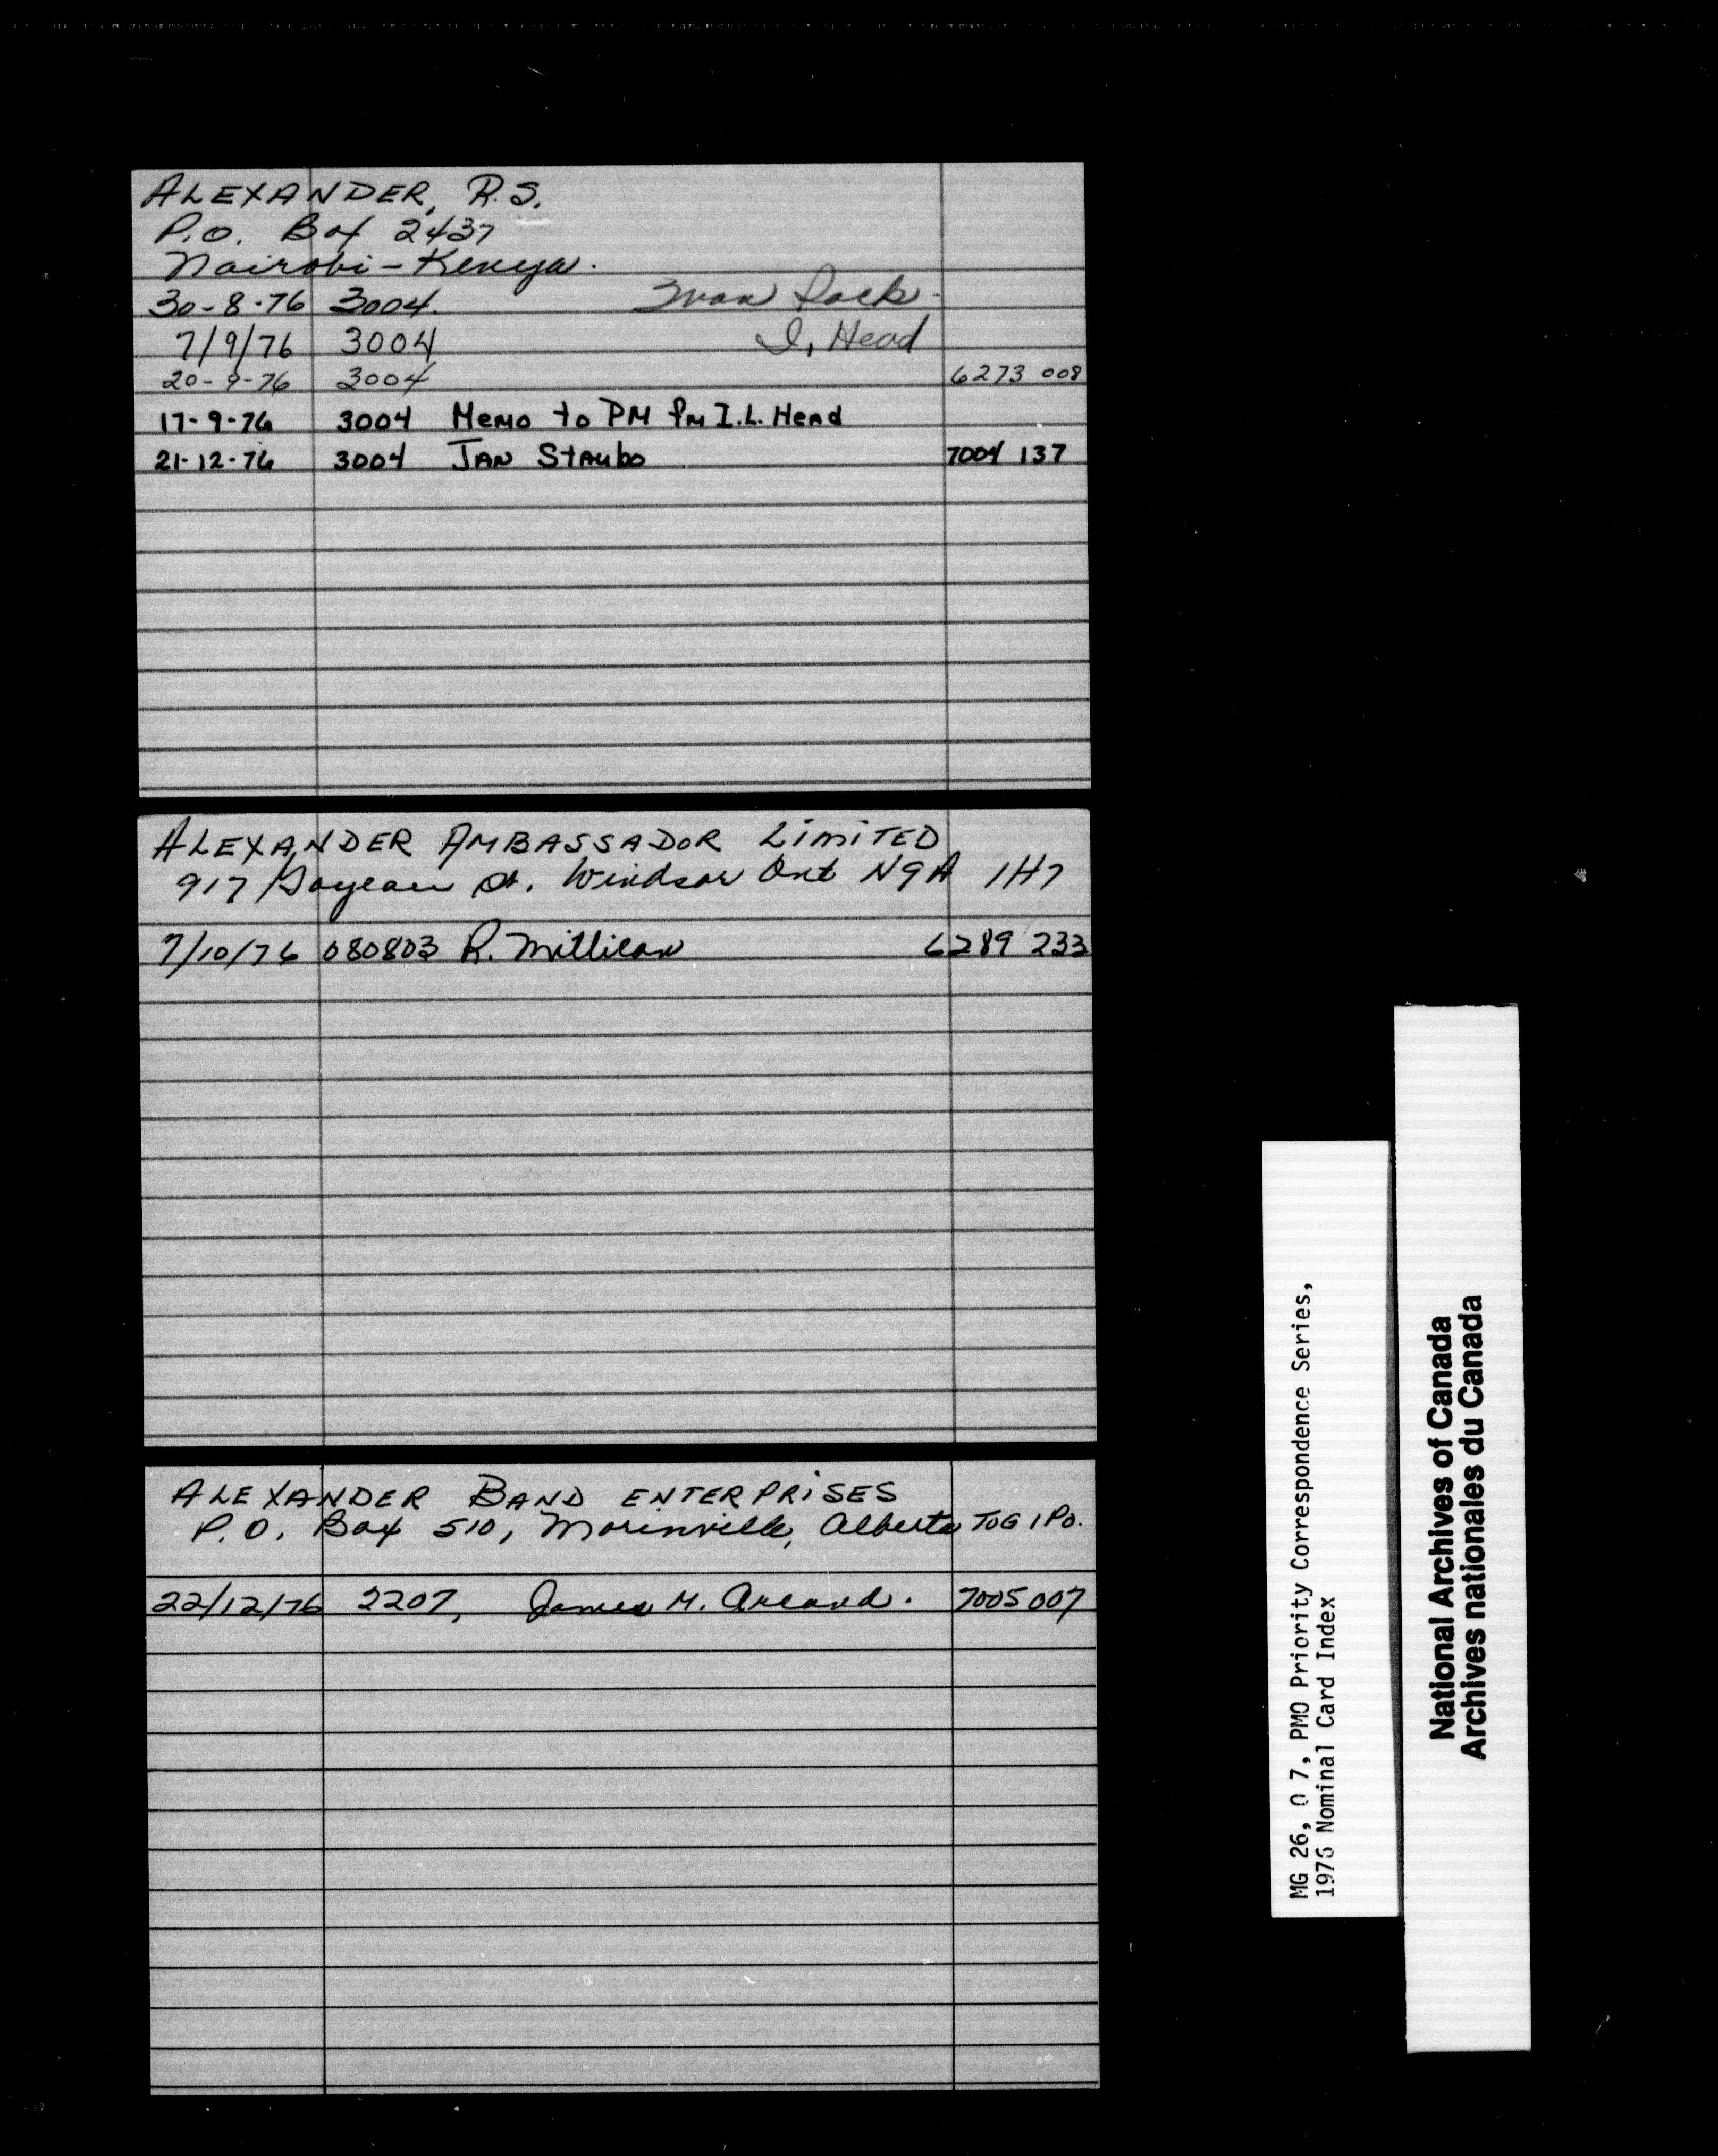 ALEXANDER, R.S.
P.O. Box 2437
Nairobi - Kenya.
30-8-76 3004.
7/9/76 3004 I. Head
20-9-76 3004 6273 008
17-9-76 3004 Memo to PM fm I.L. Head
21-12-76 3004 JAN Staubo 7004 137
ALEXANDER AMBASSADOR LIMITED
917 Goyeau St. Windsor Ont N9A 1H7
7/10/76 080803 R. Millican 6289 233
ALEXANDER BAND ENTERPRISES
P.O. Box 510, Morinville, Alberta T0G 1P0.
22/12/76 2207, James M. Arcand. 7005 007
MG 26, O 7, PMO Priority Correspondence Series,
1976 Nominal Card Index
National Archives of Canada
Archives nationales du Canada